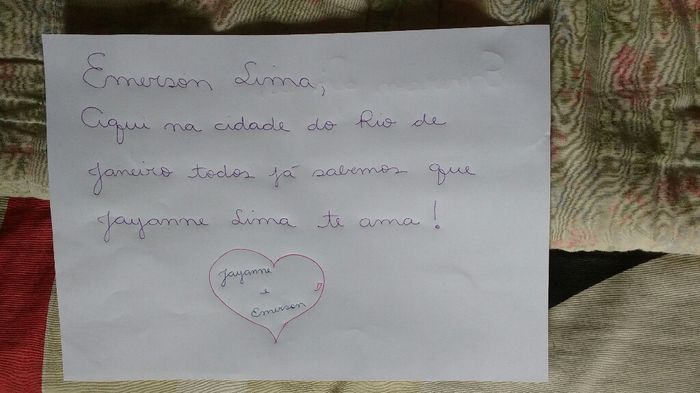 Emerson Lima,
Aqui na cidade do Rio de
Janeiro todos já sabemos que
Jayanne Lima te ama!
Jayanne
e
Emerson